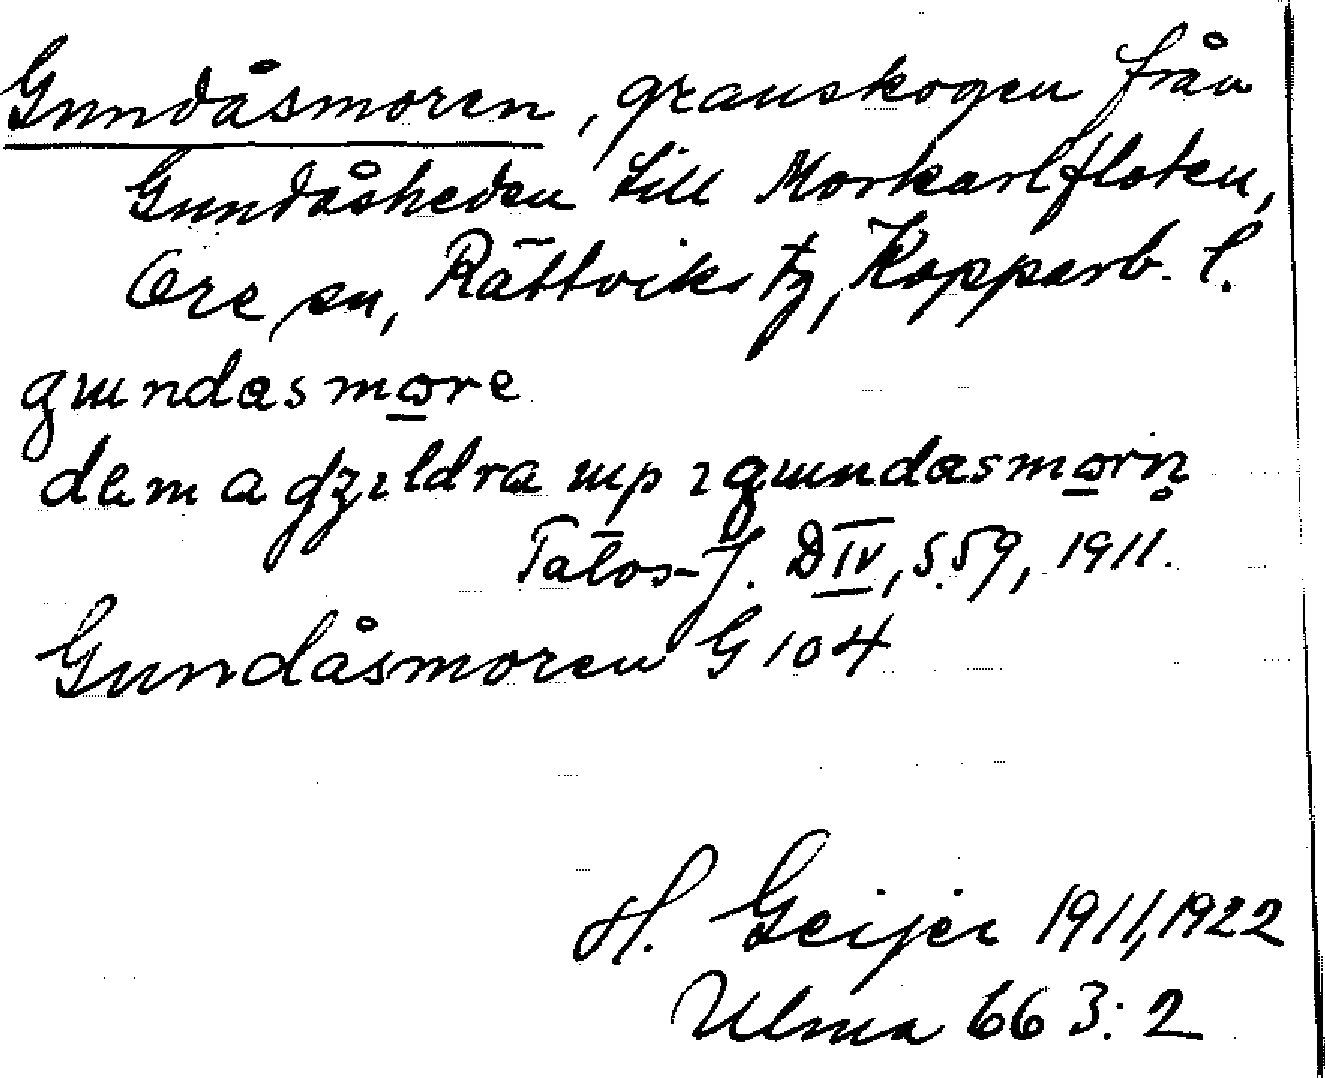 Gundåsmoren, granskogen från
Gundåsheden till Morkarlfloten,
Ore sn, Rättviks tg, Kopparb. l.
gɯndasmɷre
dem a ʤɪldra ɯp ɪ gɯndasmɷrn̥
D IV, s. 59, 1911.
Gundåsmoren G 104
H. Geijer 1911, 1922
Ulma 66 3:2